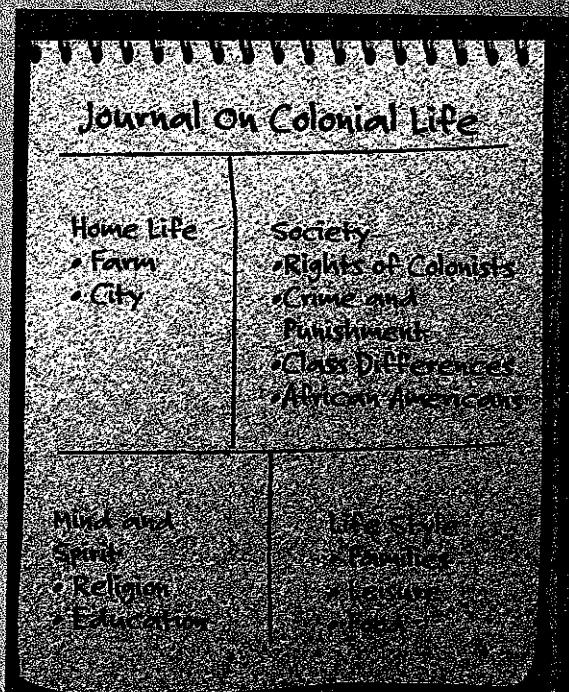 Journal On Colonial Life
Home Life
• Farm
• City
Society
• Rights of Colonists
• Crime and
Punishment
• Class Differences
• African Americans
Mind and
Spirit
• Religion
• Education
Life Style
• Families
• Leisure